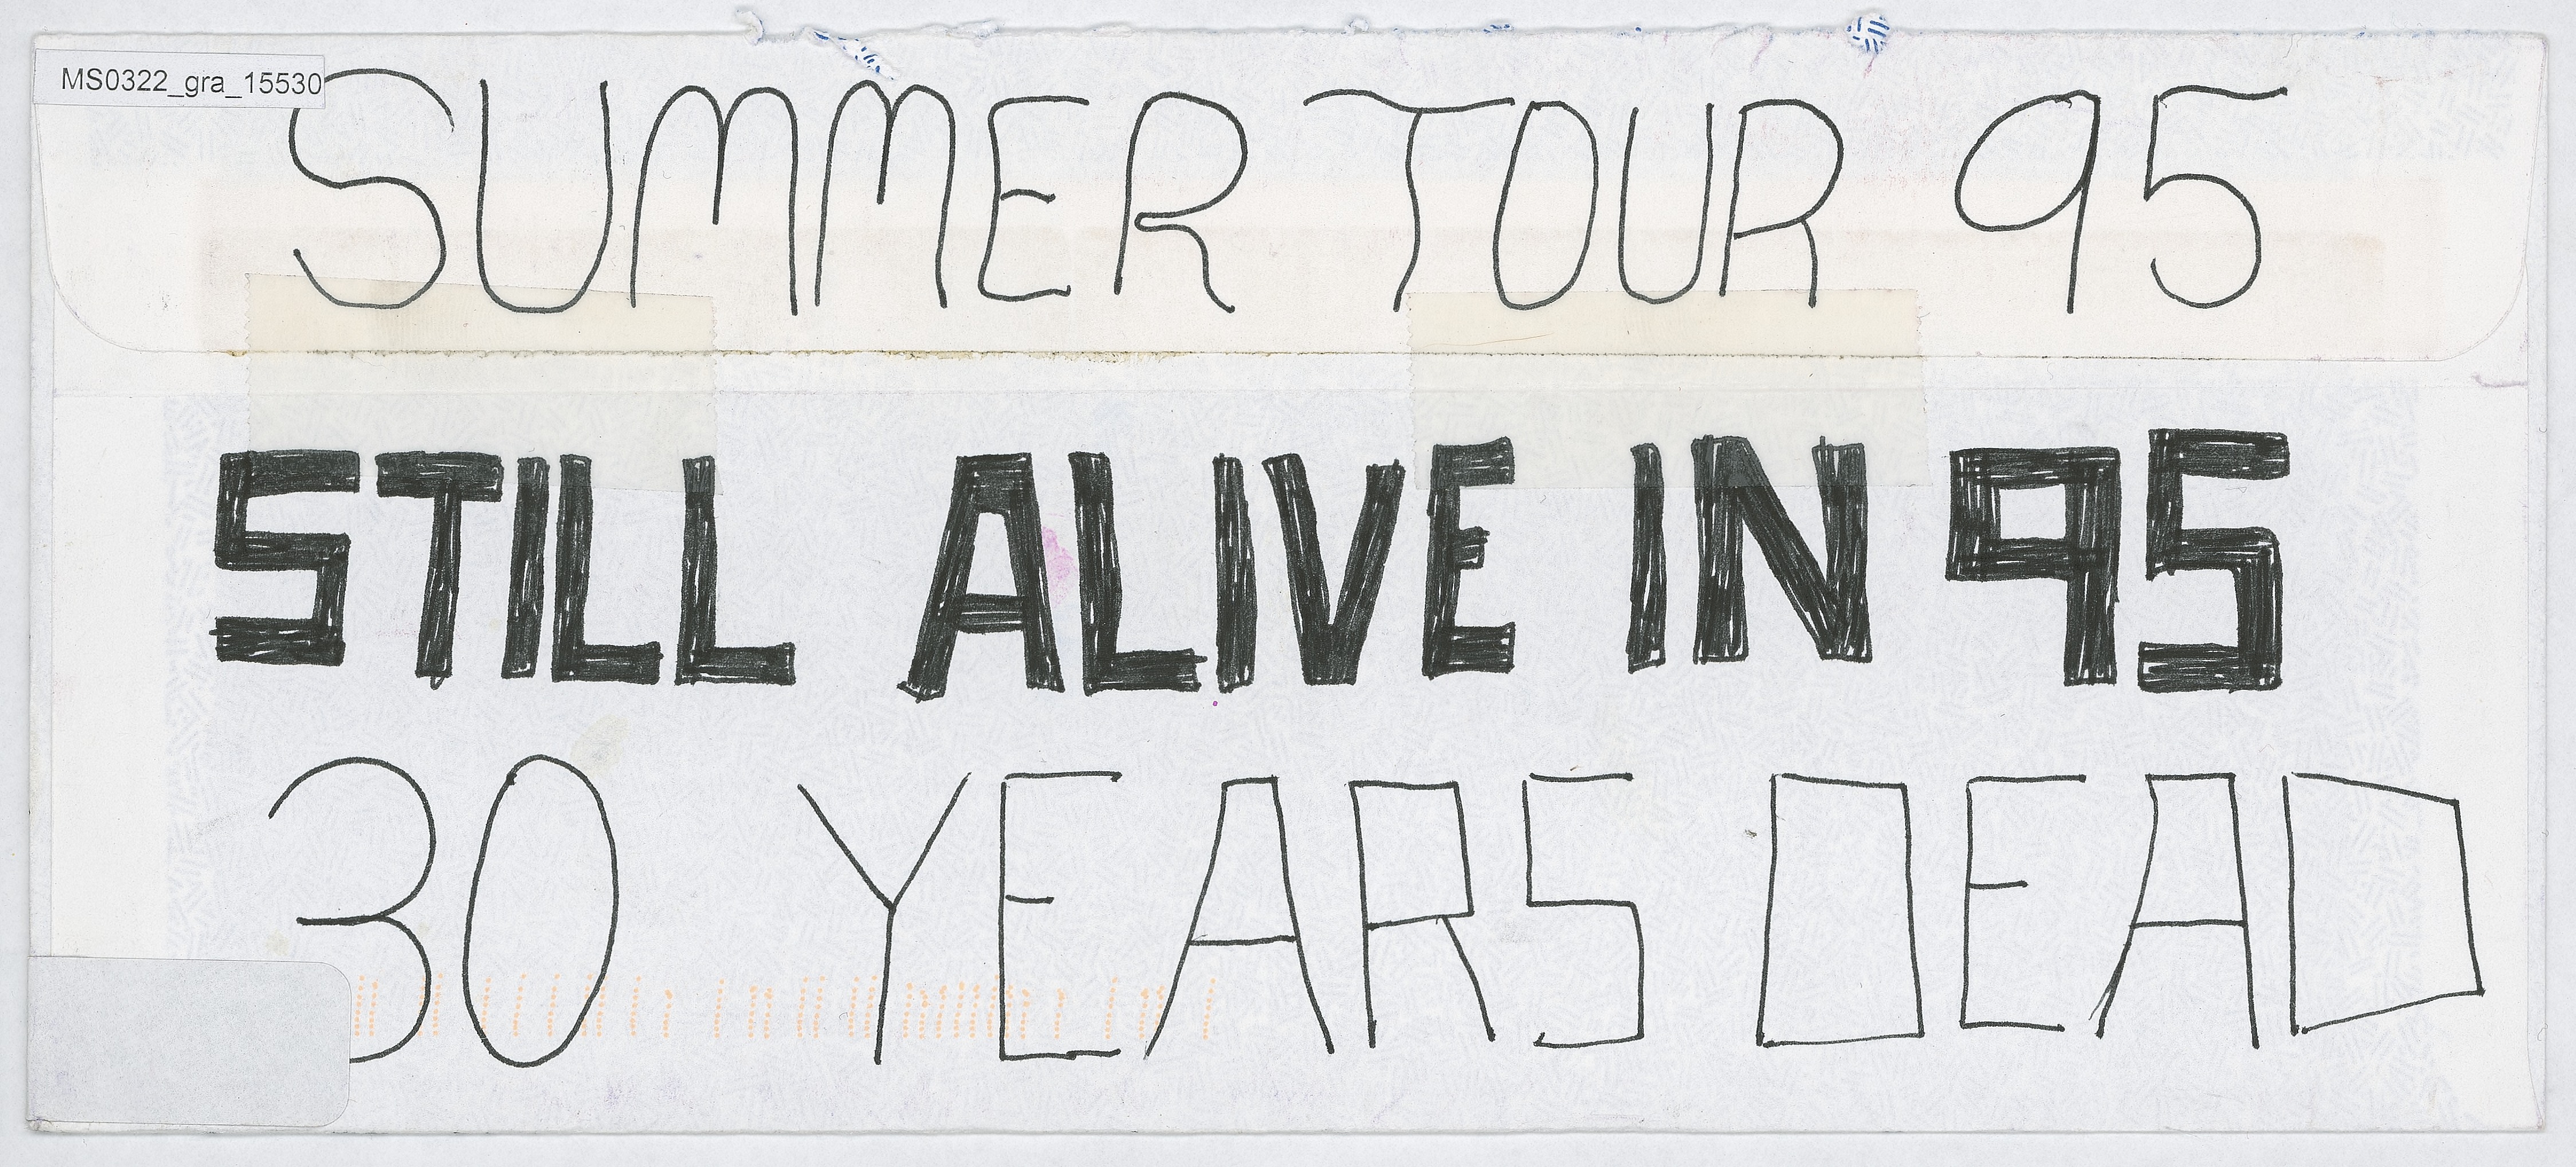 MS0322_gra_15530
SUMMER TOUR 95
STILL ALIVE IN 95
30 YEARS DEAD